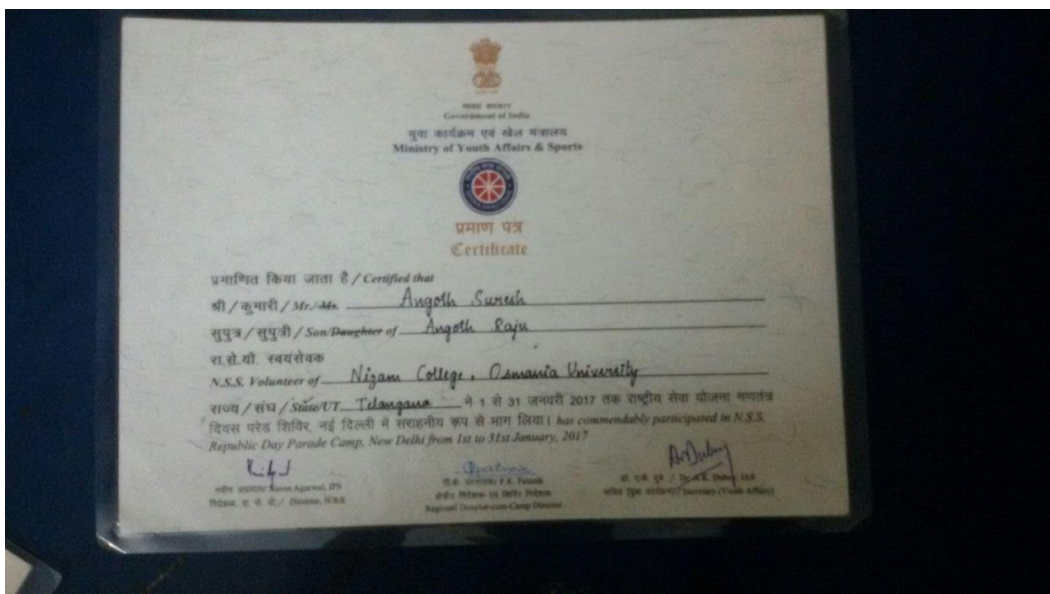 भारत सरकार
Government of India
युवा कार्यक्रम एवं खेल मंत्रालय
Ministry of Youth Affairs & Sports
प्रमाण पत्र
Certificate
प्रमाणित किया जाता है / Certified that
श्री / कुमारी / Mr./Ms. Angoth Suresh
सुपुत्र / सुपुत्री / Son/Daughter of Angoth Raju
रा.से.यो. स्वयंसेवक
N.S.S. Volunteer of Nizam College, Osmania University
राज्य / संघ / State/UT Telangana ने 1 से 31 जनवरी 2017 तक राष्ट्रीय सेवा योजना गणतंत्र
दिवस परेड शिविर, नई दिल्ली में सराहनीय रूप से भाग लिया। has commendably participated in N.S.S.
Republic Day Parade Camp, New Delhi from 1st to 31st January, 2017
Agarwal, IPS
निदेशक, रा. से. यो. / Director, N.S.S.
P.K. Patnaik
क्षेत्रीय निदेशक एवं शिविर निदेशक
Regional Director-cum-Camp Director
डॉ. ए.के. दुबे / Dr. A.K. Dubey, IAS
सचिव (युवा कार्यक्रम) / Secretary (Youth Affairs)